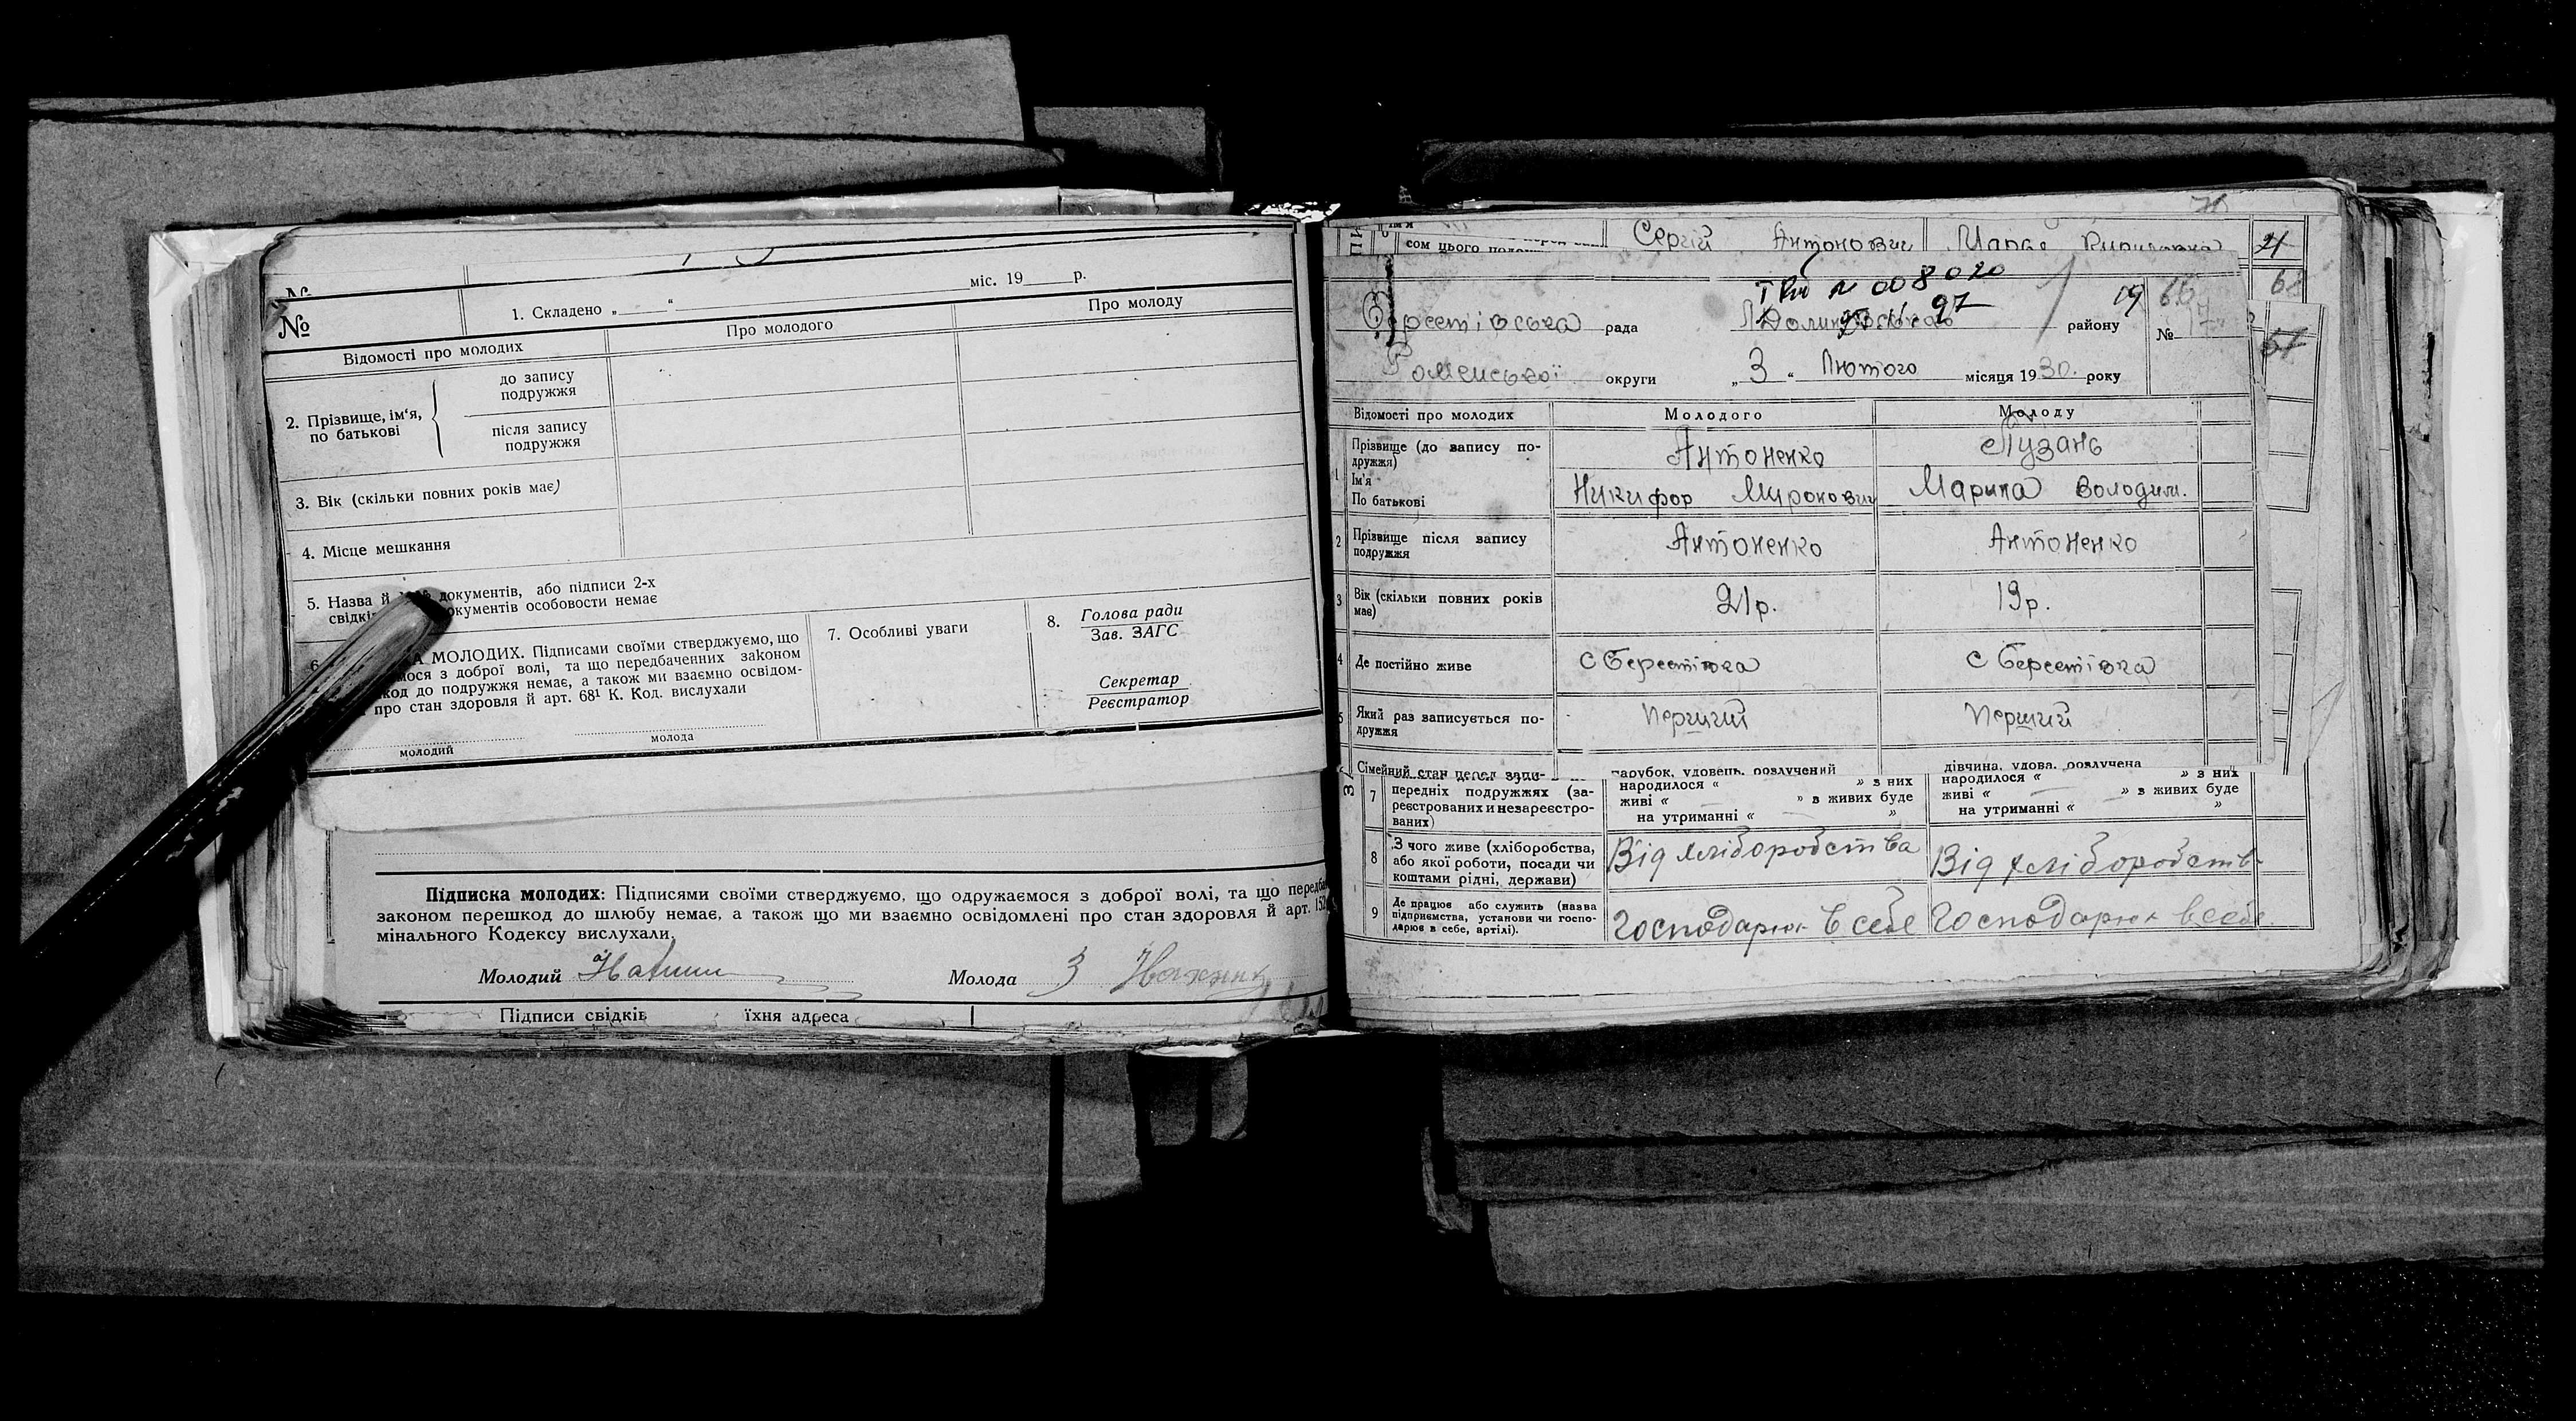 №
1. Складено „ “ міс. 19 р.
Відомості про молодих
Про молодого
Про молоду
2. Прізвище, ім‘я, по батькові
до запису подружжя
після запису подружжя
3. Вік (скільки повних років має)
4. Місце мешкання
5. Назва й документів, або підписи 2-х
документів особовости немає
МОЛОДИХ. Підписами своїми стверджуємо, що
з доброї волі, та що передбаченних законом
до подружжя немає, а також ми взаємно освідом-
про стан здоровля й арт. 68¹ К. Код. вислухали
молодий
молода
7. Особливі уваги
8. Голова ради
Зав. ЗАГС
Секретар
Реєстратор
Підписка молодих: Підписями своїми стверджуємо, що одружаємося з доброї волі, та що
законом перешкод до шлюбу немає, а також що ми взаємно освідомлені про стан здоровля й арт. 152
мінального Кодексу вислухали.
Молодий
Молода
Підписи свідків їхня адреса
сом цього
Сергій Антонович
21
№ 008020
97
19
Берестівська рада
району
№ 17
Роменської округи „3“ Лютого місяця 1930. року
Відомості про молодих
Молодого
Молоду
1 Прізвище (до запису по-
дружжя)
Ім'я
По батькові
Антоненко
Никифор Миронович
Лузань
Марина Володим.
2 Прізвище після запису
подружжя
Антоненко
Антоненко
3 Вік (скільки повних років
має)
21р.
19р.
4 Де постійно живе
с Берестівка
с Берестівка
5 Який раз записується по-
дружжя
Перший
Перший
Сімейний стан перед запи-
парубок, удовець, розлучений
дівчина, удова, розлучена
7 передніх подружжях (за-
реєстрованих и незареєстро-
ваних)
народилося “ ” з них
живі “ ” в живих буде
на утриманні “ ”
народилося “ ” з них
живі “ ” в живих буде
на утриманні “ ”
8 З чого живе (хліборобства,
або якої роботи, посади чи
коштами рідні, держави)
Від хліборобства
Від хліборобств
9 Де працює або служить (назва
підприємства, установи чи госпо-
дарює в себе, артілі).
Господарює в себе
Господарює в себе.